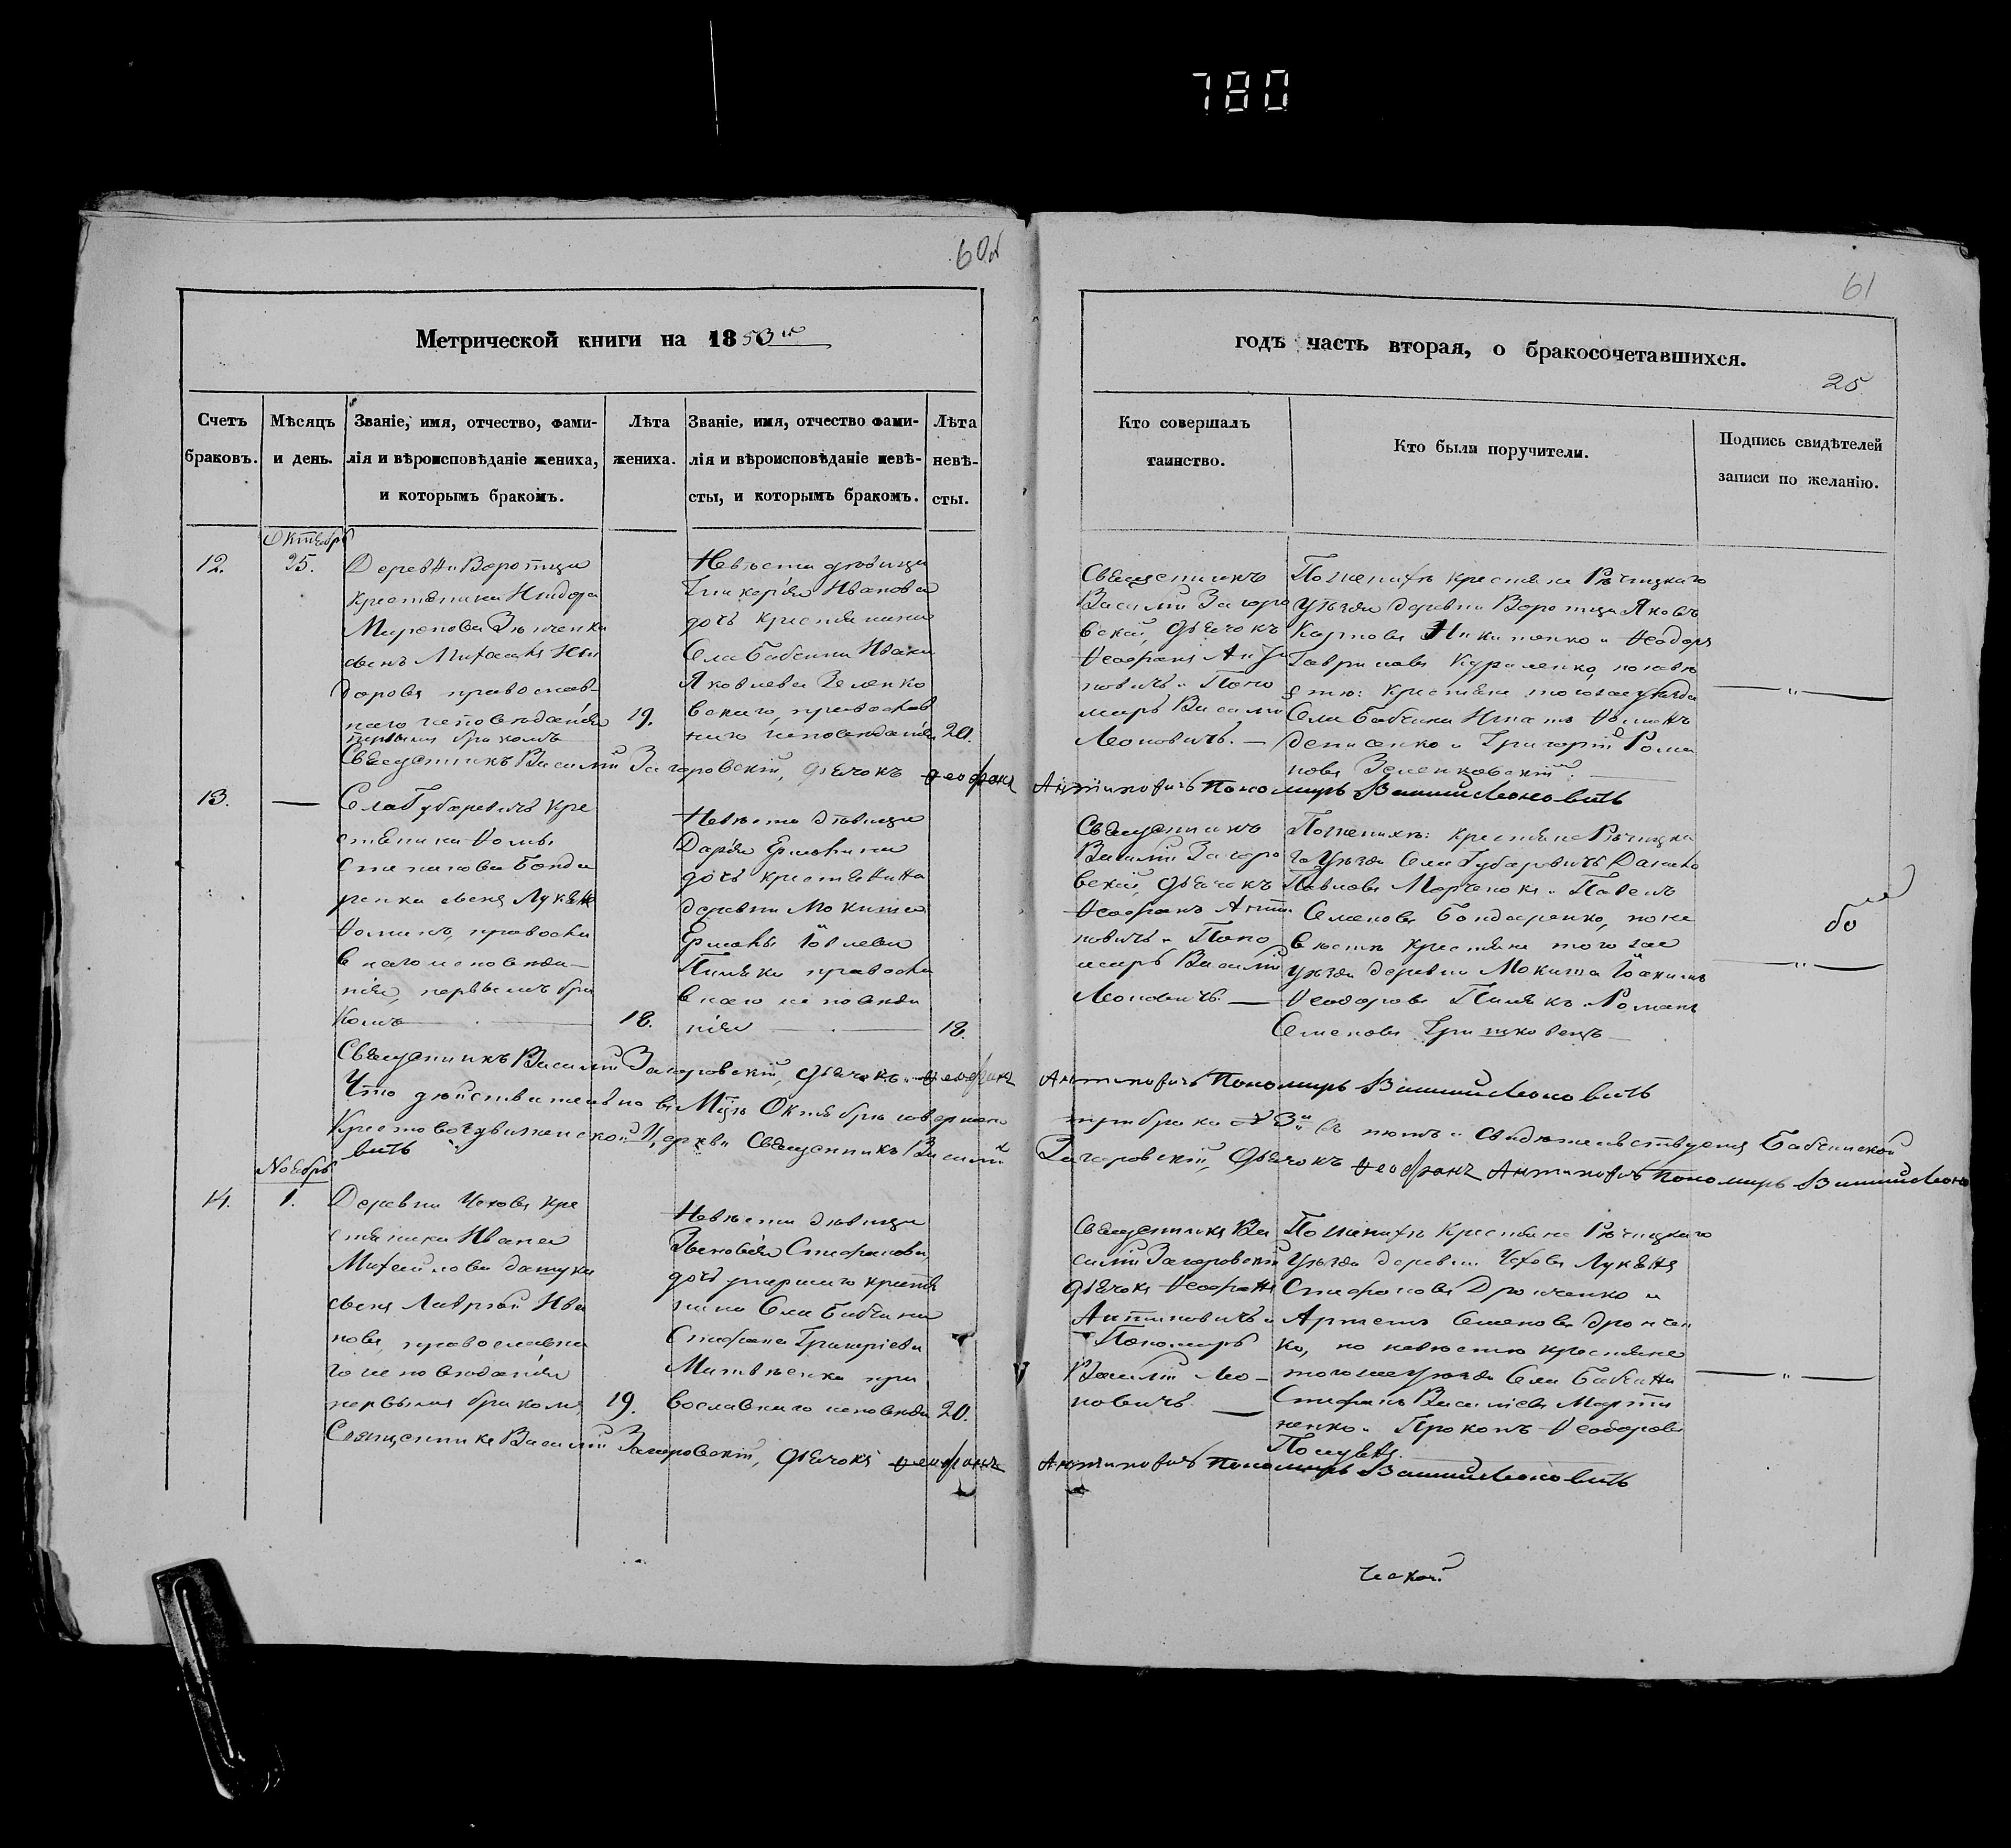 780
60об
61
Метрической книги на 1853й
годъ часть вторая, о бракосочетавшихся.
25
Счетъ браковъ.
Мѣсяцъ и день.
Званіе, имя, отчество, фами-
лія и вѣроисповѣданіе жениха,
и которымъ бракомъ.
Лѣта жениха.
Званіе, имя, отчество фами-
лія и вѣроисповѣданіе невѣ-
сты, и которымъ бракомъ.
Лѣта невѣ-
сты.
Кто совершалъ
таинство.
Кто были поручители.
Подпись свидѣтелей
записи по желанію.
Октябрь
12.
25.
Деревни Воротца
крестянина
Миронова
сынъ Михаилъ
доровъ православ-
наго исповѣданія
первымъ бракомъ
19.
Невеста дѣвица
Гликерія Иванова
дочь крестянина
Села Бабчина Ивана
Яковлева Зеленко
вскаго, православ
наго исповѣданія
20.
Священникъ
Василій Загоро
вскій, Дьячокъ
Ѳеофанъ Анти
повичъ и Поно
марь Василій
Леоновичъ. —
По женихѣ крестяне Рѣчицкаго
уѣзда деревни Воротца Яковъ
Карповъ Никитенко и Ѳеодоръ
Гавриловъ Куриленко, по невѣ
стѣ: крестяне того же уѣзда
Села Бабчина Игнатъ
Денисенко и Григорій Рома
новъ Зеленковскій
Священникъ Василій Загоровскій, Дьячокъ Ѳеофанъ Антиповичъ Пономарь Василій Леоновичъ
13.
—
Села Губаревичъ кре
стянина Ѳомы
Степанова Бонда
ренка сынъ Лукьянъ
Ѳоминъ, правосла
внаго исповѣда-
нія, первымъ бра
комъ
18.
Невѣста дѣвица
Дарія Ермолина
дочь крестянина
деревни Мокиша
Ермолы Іовлева
Пиляка правосла
внаго исповѣда
нія
18.
Священникъ
Василій Загоро
вскій, Дьячокъ
Ѳеофанъ Анти
повичъ и Поно
марь Василій
Леоновичъ. —
По женихѣ: крестяне Рѣчицка
го Уѣзда Села Губаревичъ
Павловъ Марченокъ и Павелъ
Семеновъ Бондаренко, по не
вѣстѣ крестяне того же
уѣзда деревни Мокиша Іоакимъ
Ѳеодоровъ Пилякъ и Романъ
Семеновъ Гришковецъ
Священникъ Василій Загоровскій, Дьячокъ Ѳеофанъ Антиповичъ Пономарь Василій Леоновичъ
Что дѣйствительно въ Мцѣ Октябрѣ
три брака №3й въ томъ и свидѣтельствуемъ Бабчинской
Крестовоздвиженской Церкви Священникъ Василій Загоровскій, Дьячокъ Ѳеофанъ Антиповичъ Пономарь Василій Леоно
вичъ
Ноябрь
14.
1.
Деревни Чехова кре
стянина Ивана
Михайлова
сынъ Лаврѣй Ива
новъ, православна
го исповѣданія
первымъ бракомъ
19.
Невѣста дѣвица
Зѣновія Стефанова
дочь умершаго крестя
нина Села Бабчина
Стефана Григоріева
Матвѣенка пра
вославнаго исповѣда
20.
Священникъ Ва
силій Загоровскій
Дьячокъ Ѳеофанъ
Антиповичъ и
Пономарь
Василій Ле-
новичъ. —
По женихѣ Крестяне Рѣчицкаго
Уѣзда деревни Чехова Лукьянъ
Стефановъ Дромченко и
Артемъ Семеновъ Дромчен
ко, по невѣстѣ крестяне
того же уѣзда Села Бабчина
Стефанъ Василіевъ Марти
ненко и Прокопъ Ѳеодоровъ
Священникъ Василій Загоровскій, Дьячокъ Ѳеофанъ Антиповичъ Пономарь Василій Леоновичъ